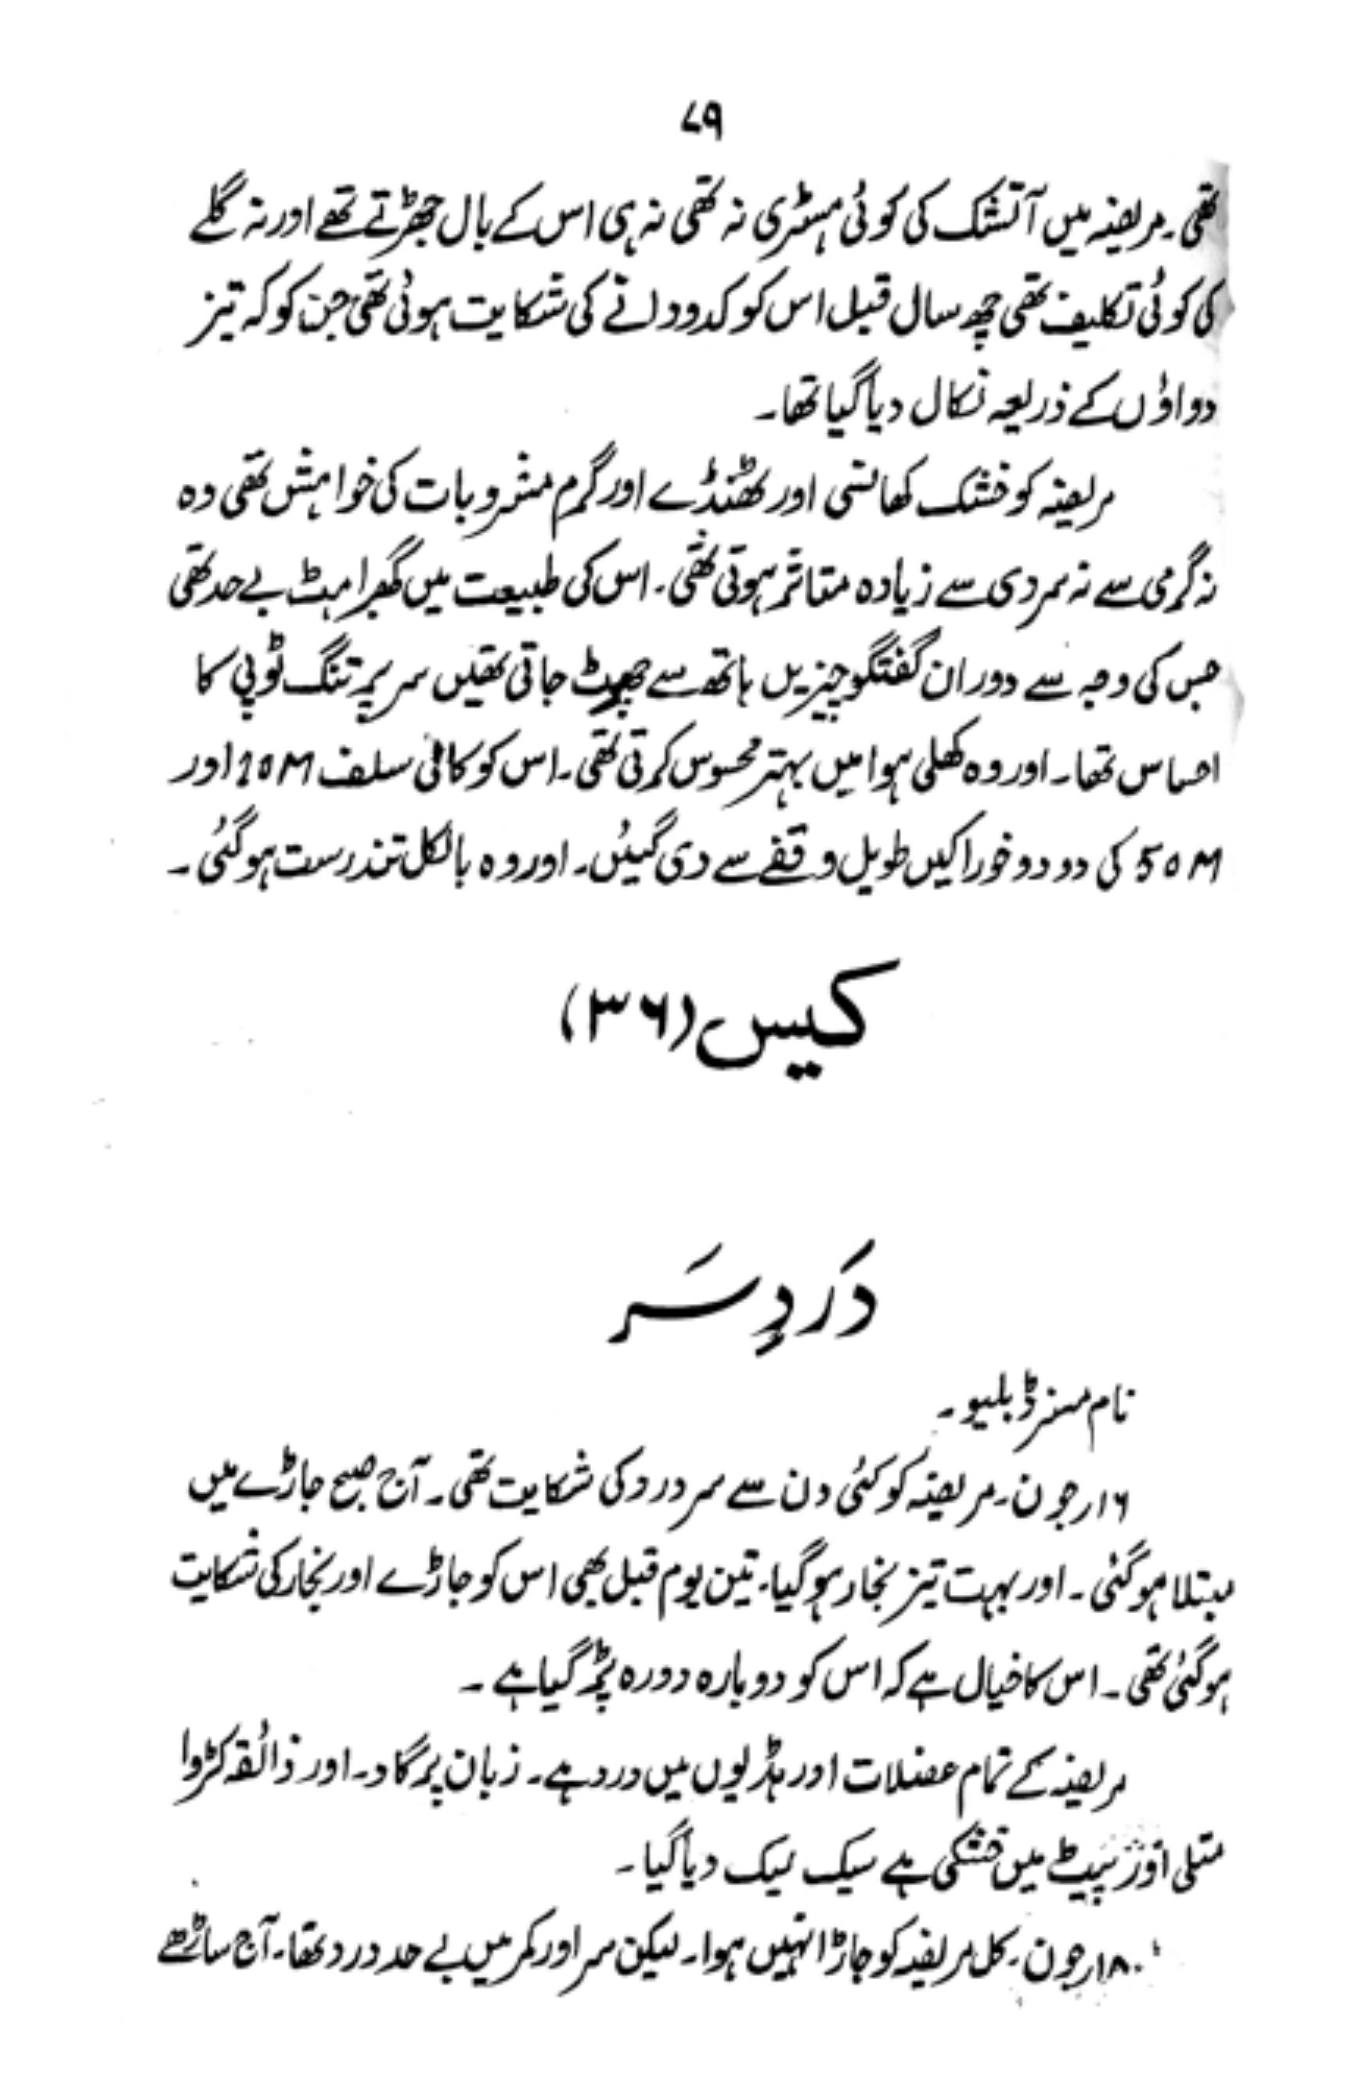 ۷۹
تھی۔ مریضہ میں آتشک کی کوئی ہسٹری نہ تھی نہ ہی اس کے بال جھڑتے تھے اور نہ گلے
کی کوئی تکلیف تھی چھ سال قبل اس کو کدو دانے کی شکایت ہوئی تھی جن کو کہ تیز
دواؤں کے ذریعہ نکال دیا گیا تھا۔
مریضہ کو خشک کھانسی اور ٹھنڈے اور گرم مشروبات کی خواہش تھی وہ
نہ گرمی سے نہ سردی سے زیادہ متاثر ہوتی تھی۔ اس کی طبیعت میں گھبراہٹ بے حد تھی
جس کی وجہ سے دوران گفتگو چیزیں ہاتھ سے چھوٹ جاتی تھیں سر پر تنگ ٹوپی کا
احساس تھا۔ اور وہ کھلی ہوا میں بہتر محسوس کرتی تھی۔ اس کو کافی سلف 10M اور
50M کی دو دو خوراکیں طویل وقفے سے دی گیئں۔ اور وہ بالکل تندرست ہو گئی۔
کیس (۳۶)
دَردِ سَر
نام مسز ڈبلیو۔
۱۶ر جون۔ مریضہ کو کئی دن سے سر درد کی شکایت تھی۔ آج صبح جاڑے میں
مبتلا ہو گئی۔ اور بہت تیز بخار ہو گیا۔ تین یوم قبل بھی اس کو جاڑے اور بخار کی شکایت
ہو گئی تھی۔ اس کا خیال ہے کہ اس کو دوبارہ دورہ پڑ گیا ہے۔
مریضہ کے تمام عضلات اور ہڈیوں میں درد ہے۔ زبان پر گاد۔ اور ذائقہ کڑوا
متلی اور پیٹ میں خشکی ہے سیک لیک دیا گیا۔
۱۸ر جون۔ کل مریضہ کو جاڑا نہیں ہوا۔ لیکن سر اور کمر میں بے حد درد تھا۔ آج ساڑھے